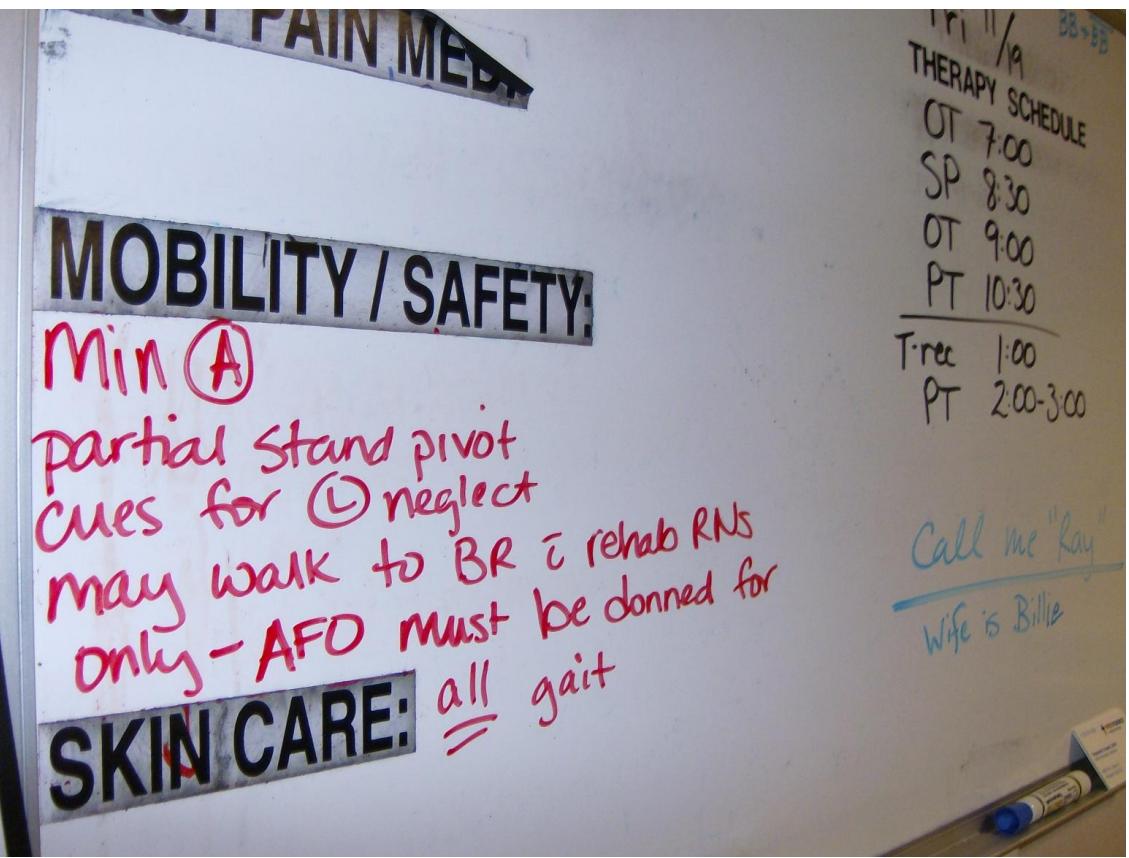 PAIN MED
MOBILITY / SAFETY:
Min Ⓐ
partial stand pivot
cues for Ⓛ neglect
may walk to BR c̄ rehab RNs
only - AFO must be donned for
all gait
SKIN CARE:
Fri 11/19
BB→BB
THERAPY SCHEDULE
OT 7:00
SP 8:30
OT 9:00
PT 10:30
T-rec 1:00
PT 2:00-3:00
Call me "Ray"
Wife is Billie